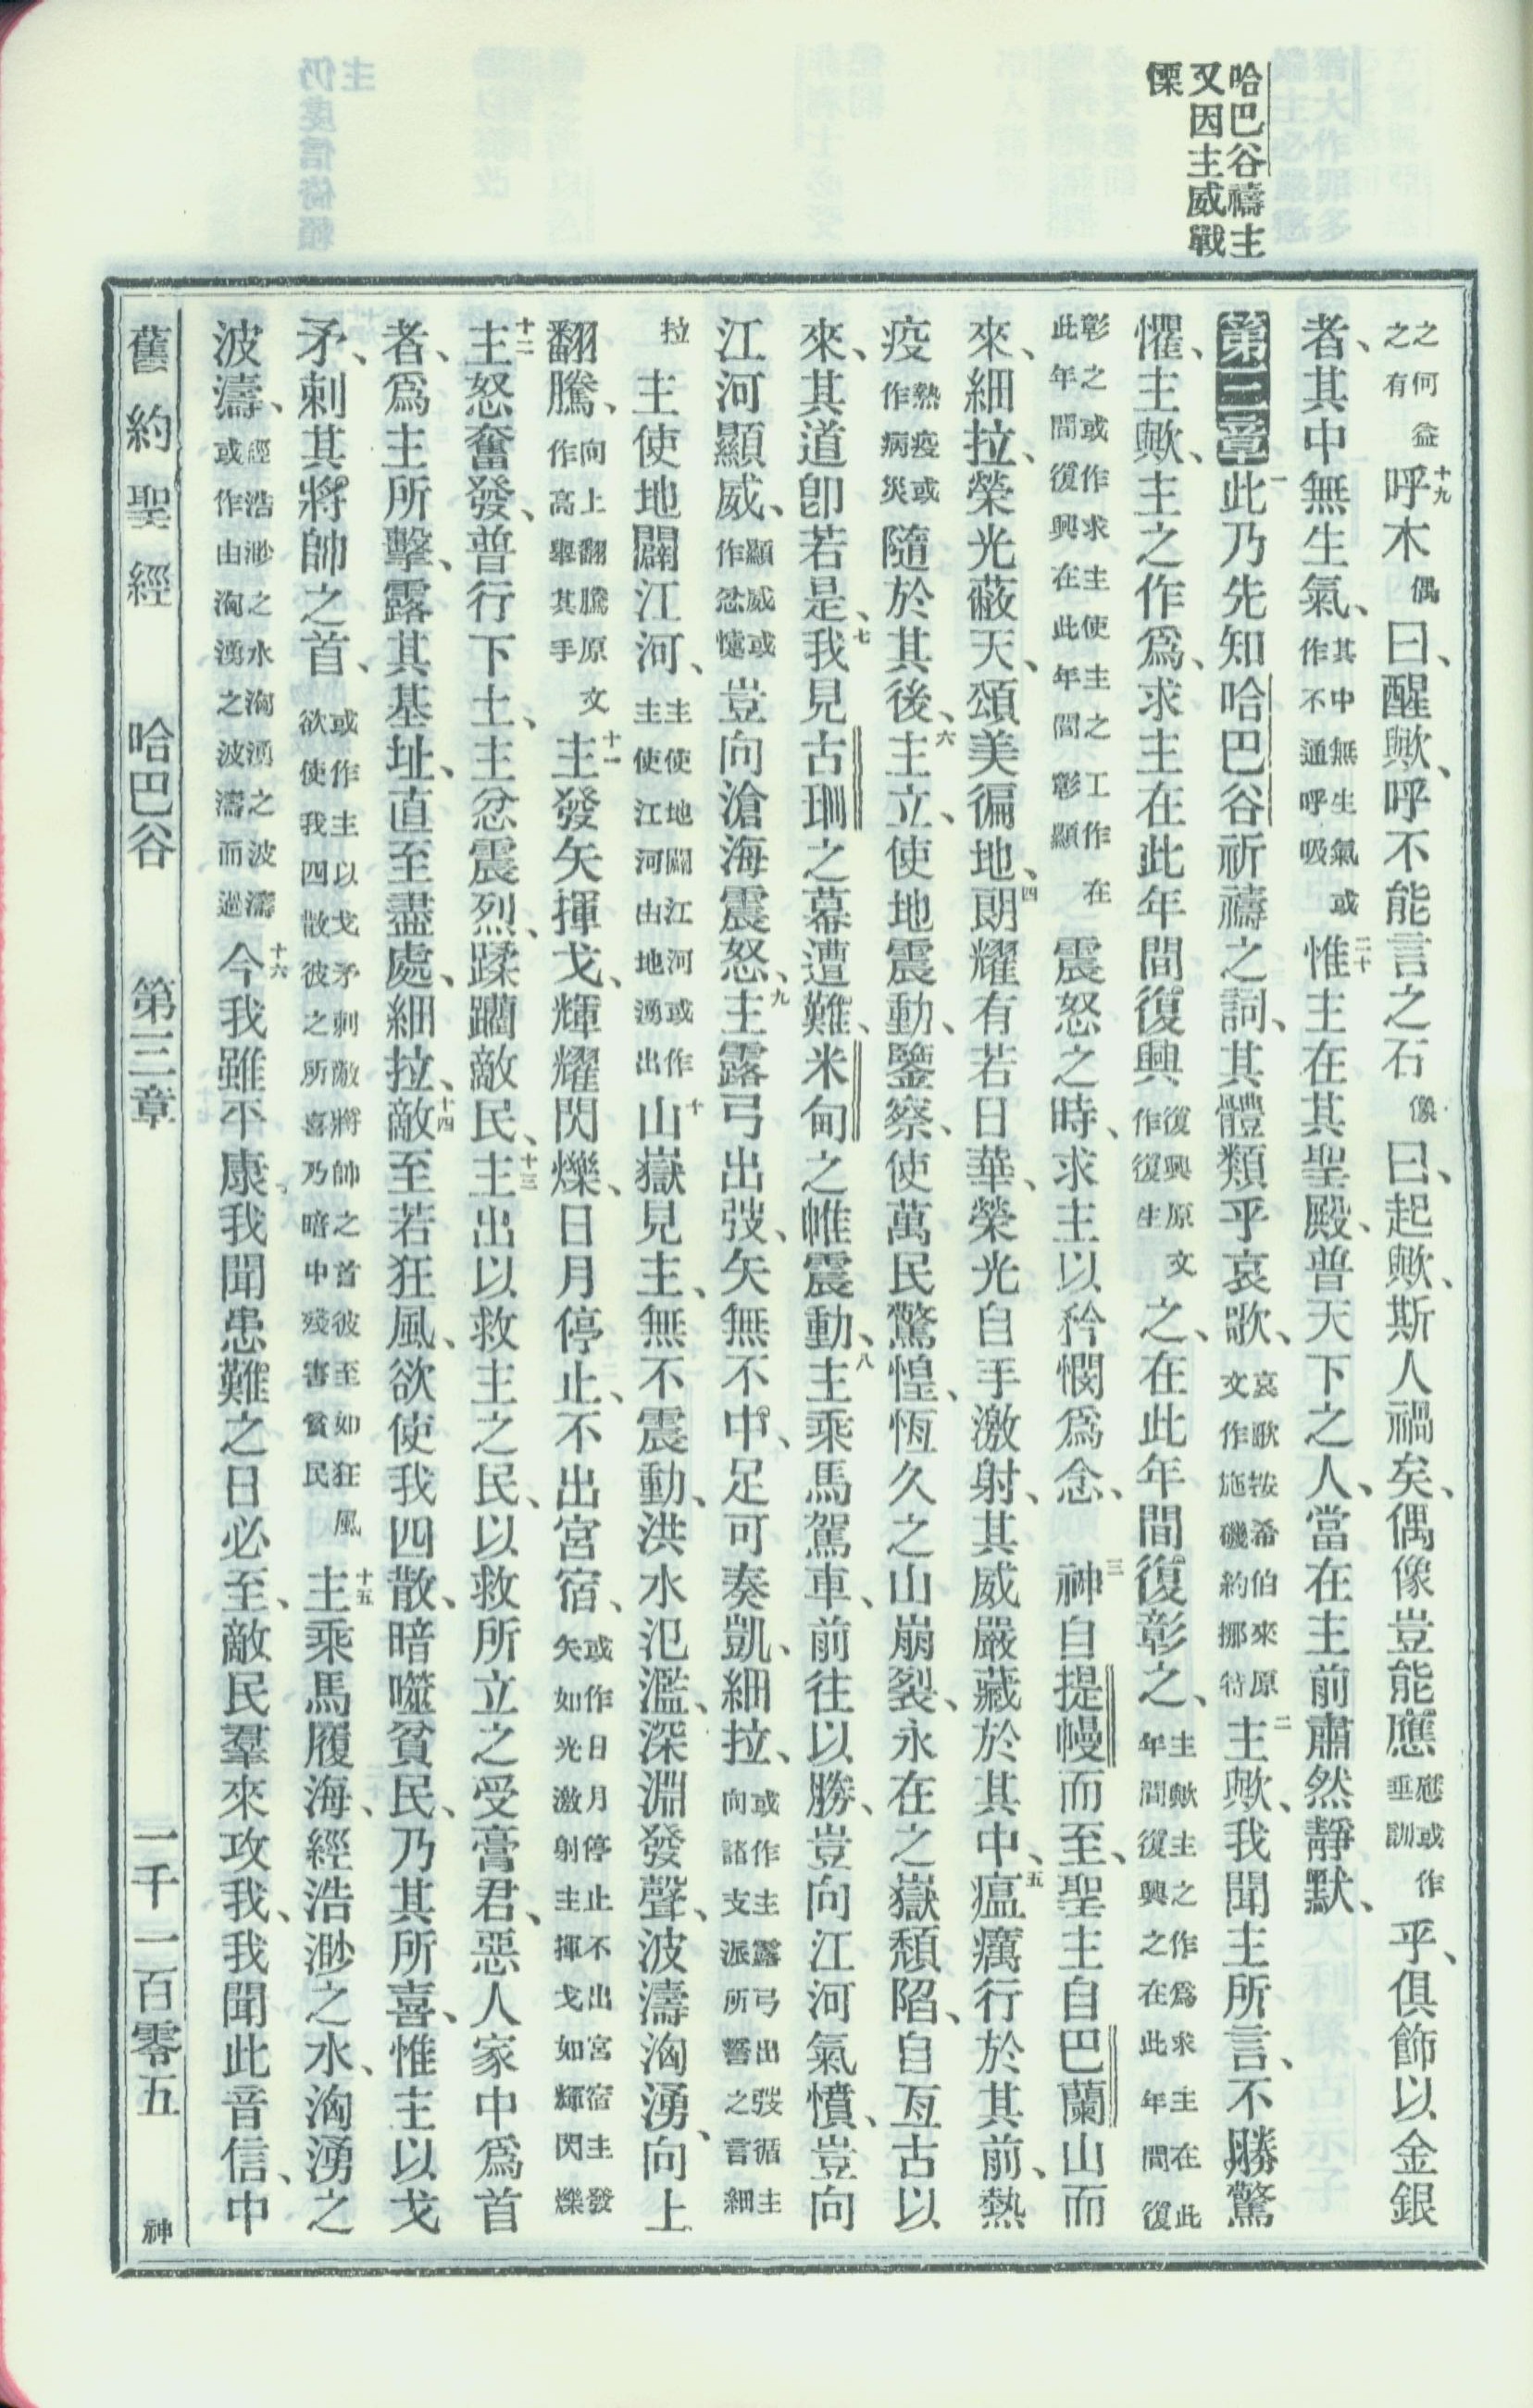 哈巴谷禱主
又因主威戰
慄
之何益之有十九呼木偶曰、醒歟、呼不能言之石像曰、起歟、斯人禍矣、偶像豈能應應或作垂訓乎、俱飾以金銀
者、其中無生氣、其中無生氣或作不通呼吸二十惟主在其聖殿、普天下之人、當在主前肅然靜默、
第三章一此乃先知哈巴谷祈禱之詞、其體類乎哀歌、哀歌按希伯來原文作施磯約挪特二主歟、我聞主所言、不勝驚
懼、主歟、主之作爲、求主在此年間復興復興原文作復生之、在此年間復彰之、主歟主之作爲求主在此年間復興之在此年間復
彰之或作求主使主之工作在此年間復興在此年間彰顯震怒之時、求主以矜憫爲念、三神自提幔而至、聖主自巴蘭山而
來、細拉、榮光蔽天、頌美徧地、四朗耀有若日華、榮光自手激射、其威嚴藏於其中、五瘟癘行於其前、熱
疫熱疫或作病災隨於其後、六主立、使地震動、鑒察、使萬民驚惶、恆久之山崩裂、永在之嶽頹陷、自亙古以
來、其道卽若是、七我見古珊之幕遭難、米甸之帷震動、八主乘馬駕車、前往以勝、豈向江河氣憤、豈向
江河顯威、顯威或作忿懥豈向滄海震怒、九主露弓出弢、矢無不中、足可奏凱、細拉、或作主露弓出弢循主向諸支派所誓之言細
拉主使地闢江河、主使地闢江河或作主使江河由地湧出十山嶽見主、無不震動、洪水氾濫、深淵發聲、波濤洶湧、向上
翻騰、向上翻騰原文作高舉其手十一主發矢揮戈、輝耀閃爍、日月停止、不出宮宿、或作日月停止不出宮宿主發矢如光激射主揮戈如輝閃爍
十二主怒奮發、普行下土、主忿震烈、蹂躪敵民、十三主出以救主之民、以救所立之受膏君、惡人家中爲首
者、爲主所擊、露其基址、直至盡處、細拉、十四敵至若狂風、欲使我四散、暗噬貧民、乃其所喜、惟主以戈
矛、刺其將帥之首、或作主以戈矛刺敵將帥之首彼至如狂風欲使我四散彼之所喜乃暗中殘害貧民十五主乘馬履海、經浩渺之水、洶湧之
波濤、經浩渺之水洶湧之波濤或作由洶湧之波濤而過十六今我雖平康、我聞患難之日必至、敵民羣來攻我、我聞此音信、中
舊約聖經 哈巴谷 第三章 一千一百零五 神